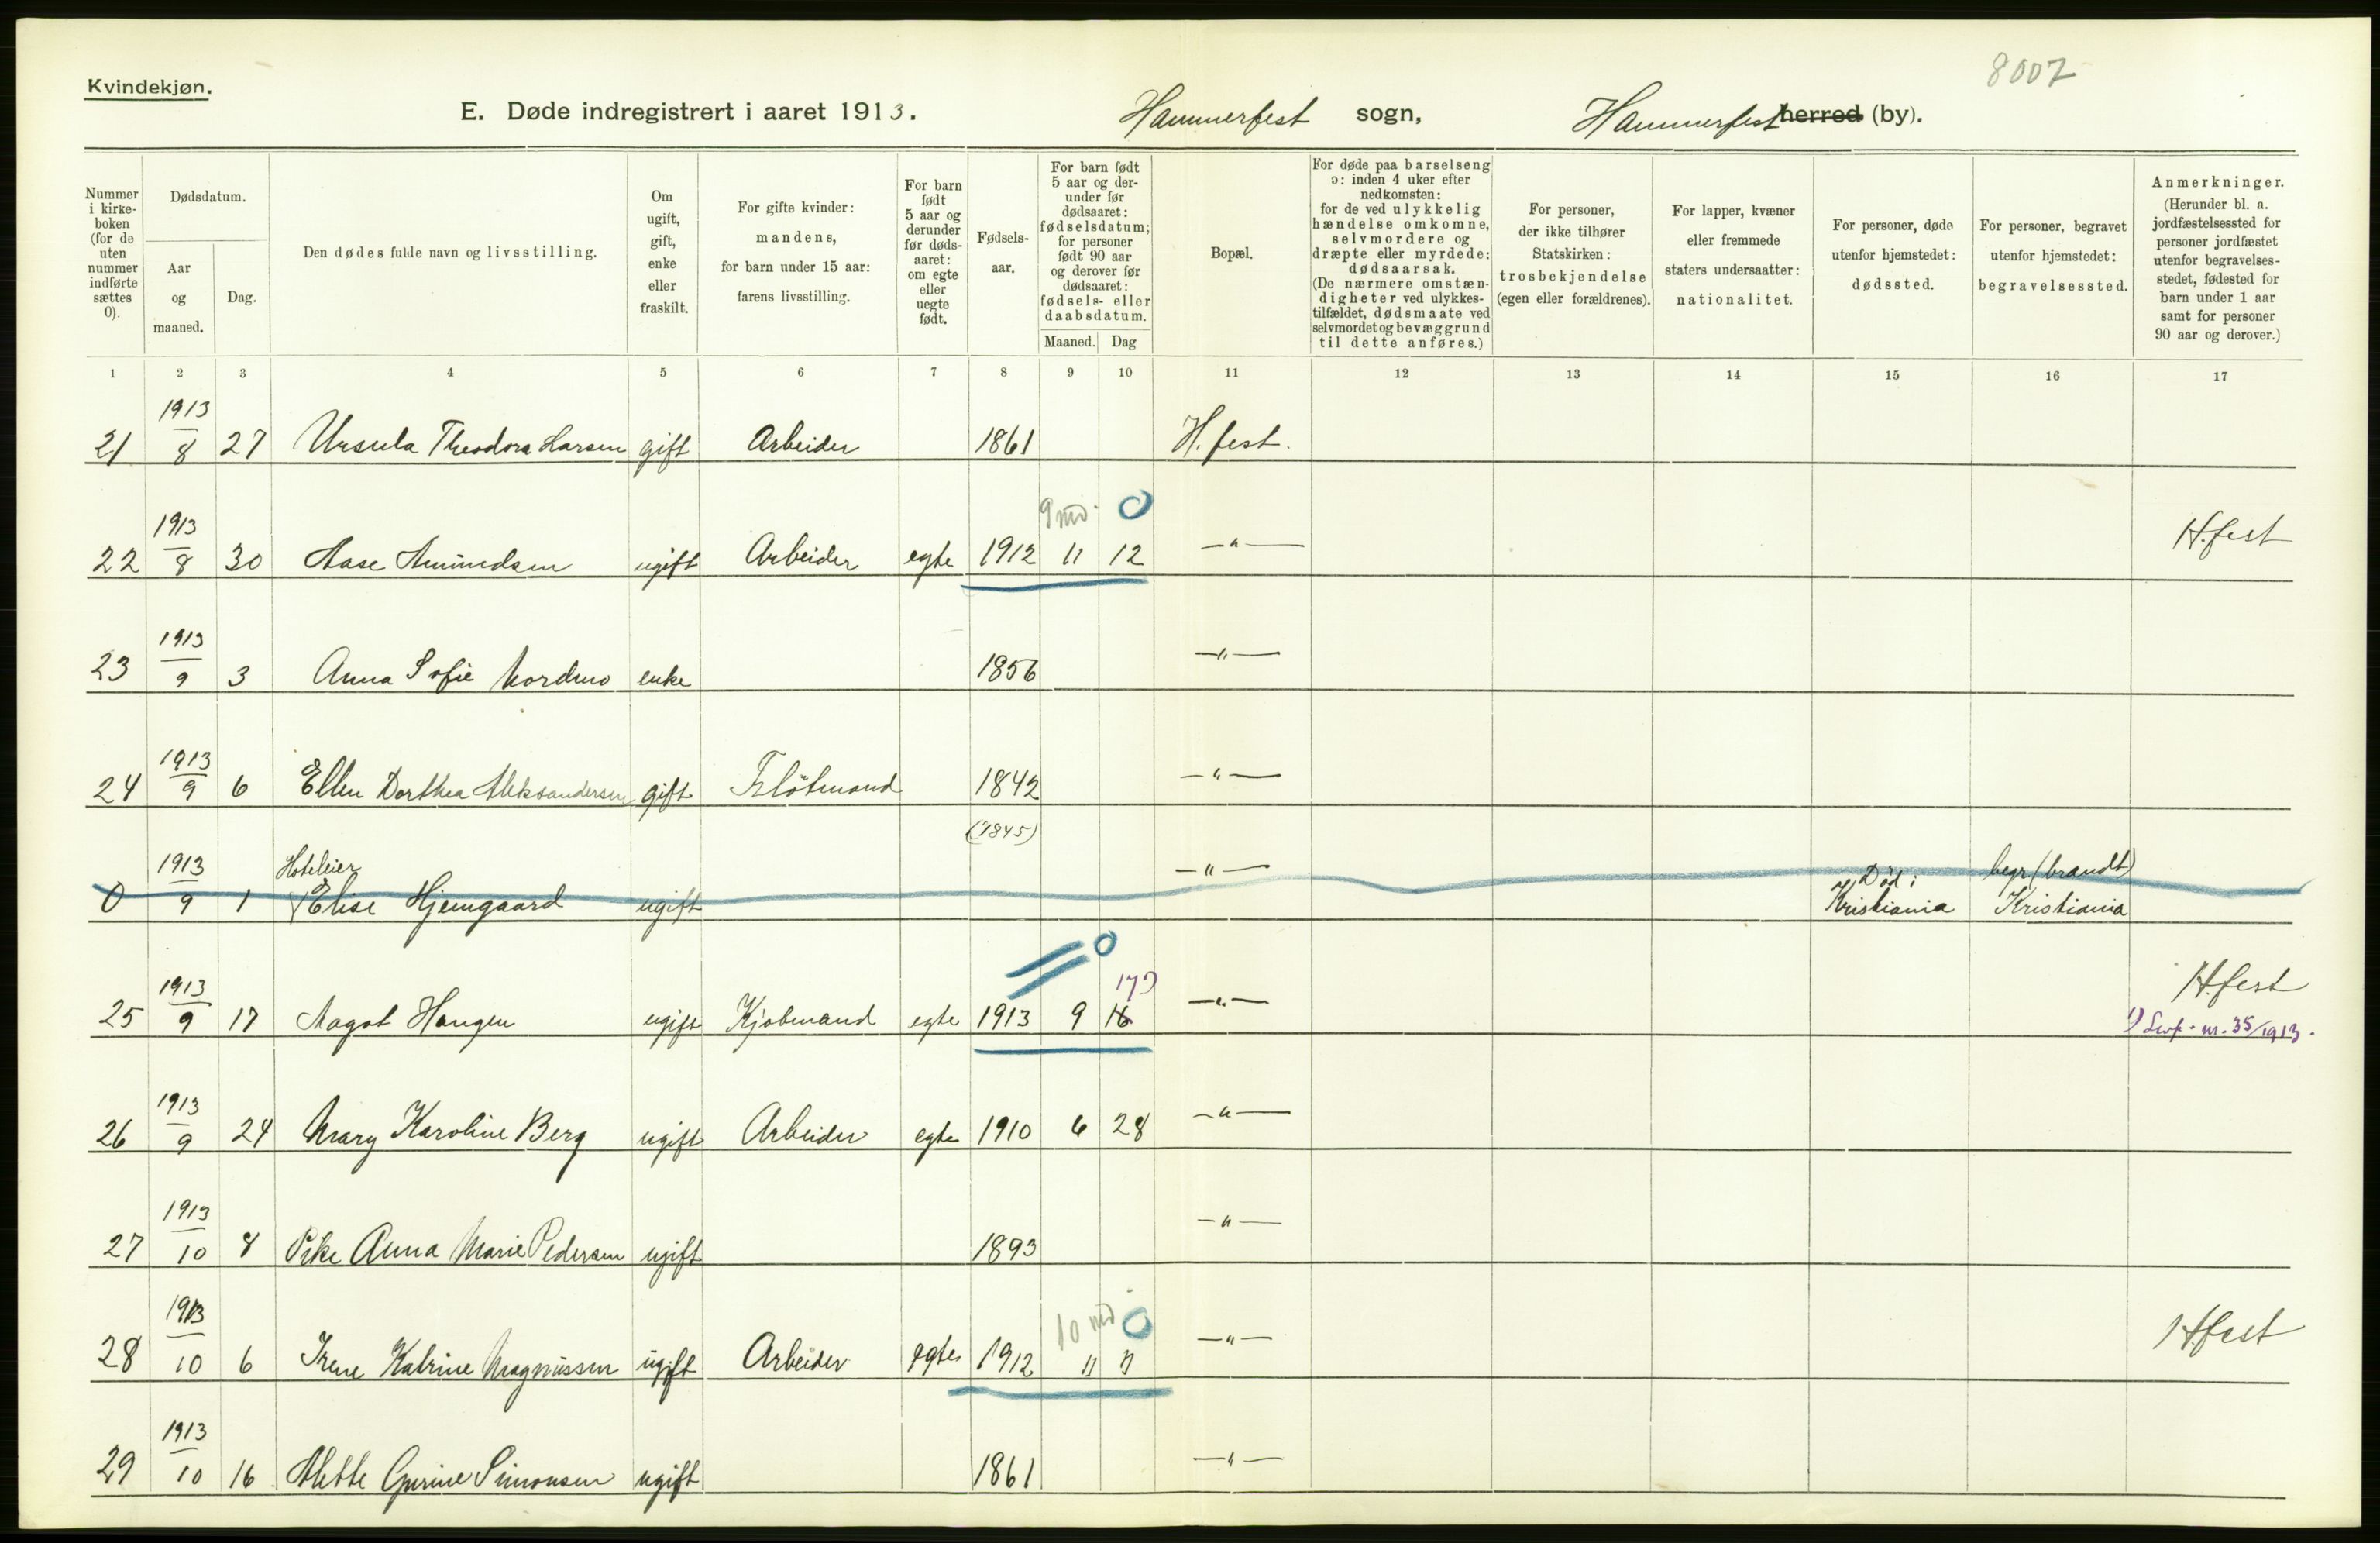 8002
Kvindekjøn.
E. Døde indregistrert i aaret 1913. Hammerfest sogn, Hammerfest herred (by).
Nummer i kirkeboken (for de uten nummer indførte sættes 0).
Dødsdatum.
Aar og maaned.
Dag.
Den dødes fulde navn og livsstilling.
Om ugift, gift, enke eller fraskilt.
For gifte kvinder: mandens, for barn under 15 aar: farens livsstilling.
For barn født 5 aar og derunder før dødsaaret: om egte eller uegte født.
Fødselsaar.
For barn født 5 aar og derunder før dødsaaret: fødselsdatum; for personer født 90 aar og derover før dødsaaret: fødsels- eller daabsdatum.
Maaned. Dag
Bopæl.
For døde paa barselseng ɔ: inden 4 uker efter nedkomsten: for de ved ulykkelig hændelse omkomne, selvmordere og dræpte eller myrdede: dødsaarsak. (De nærmere omstændigheter ved ulykkestilfældet, dødsmaate ved selvmordet og bevæggrund til dette anføres.)
For personer, der ikke tilhører Statskirken: trosbekjendelse (egen eller forældrenes).
For lapper, kvæner eller fremmede staters undersaatter: nationalitet.
For personer, døde utenfor hjemstedet: dødssted.
For personer, begravet utenfor hjemstedet: begravelsessted.
Anmerkninger. (Herunder bl. a. jordfæstelsessted for personer jordfæstet utenfor begravelsesstedet, fødested for barn under 1 aar samt for personer 90 aar og derover.)
1 2 3 4 5 6 7 8 9 10 11 12 13 14 15 16 17
1913
21 8 27 Ursula Theodora Larsen gift Arbeider 1861 H.fest.
1913 9 md. 0
22 8 30 Aase Amundsen ugift Arbeider egte 1912 11 12 —"— H.fest
1913
23 9 3 Anna Sofie Nordmo enke 1856 —"—
1913
24 9 6 Ellen Dorthea Aleksandersen gift Flötmand 1842 —"—
(1845)
1913 Hoteleier —"— Död i begr (brandt)
0 9 1 Elise Hjemgaard ugift Kristiania Kristiania
0
1913 17) H.fest
25 9 17 Aagot Haugen ugift Kjöbmand egte 1913 9 16 —"— 1) Levf. nr. 35/1913.
1913
26 9 24 Mary Karoline Berg ugift Arbeider egte 1910 6 28 —"—
1913
27 10 8 Pike Anna Marie Pedersen ugift 1893 —"—
1913 10 md 0
28 10 6 Irene Katrine Magnussen ugift Arbeider egte 1912 11 7 —"— Hfest
1913
29 10 16 Alette Simonsen ugift 1861 —"—